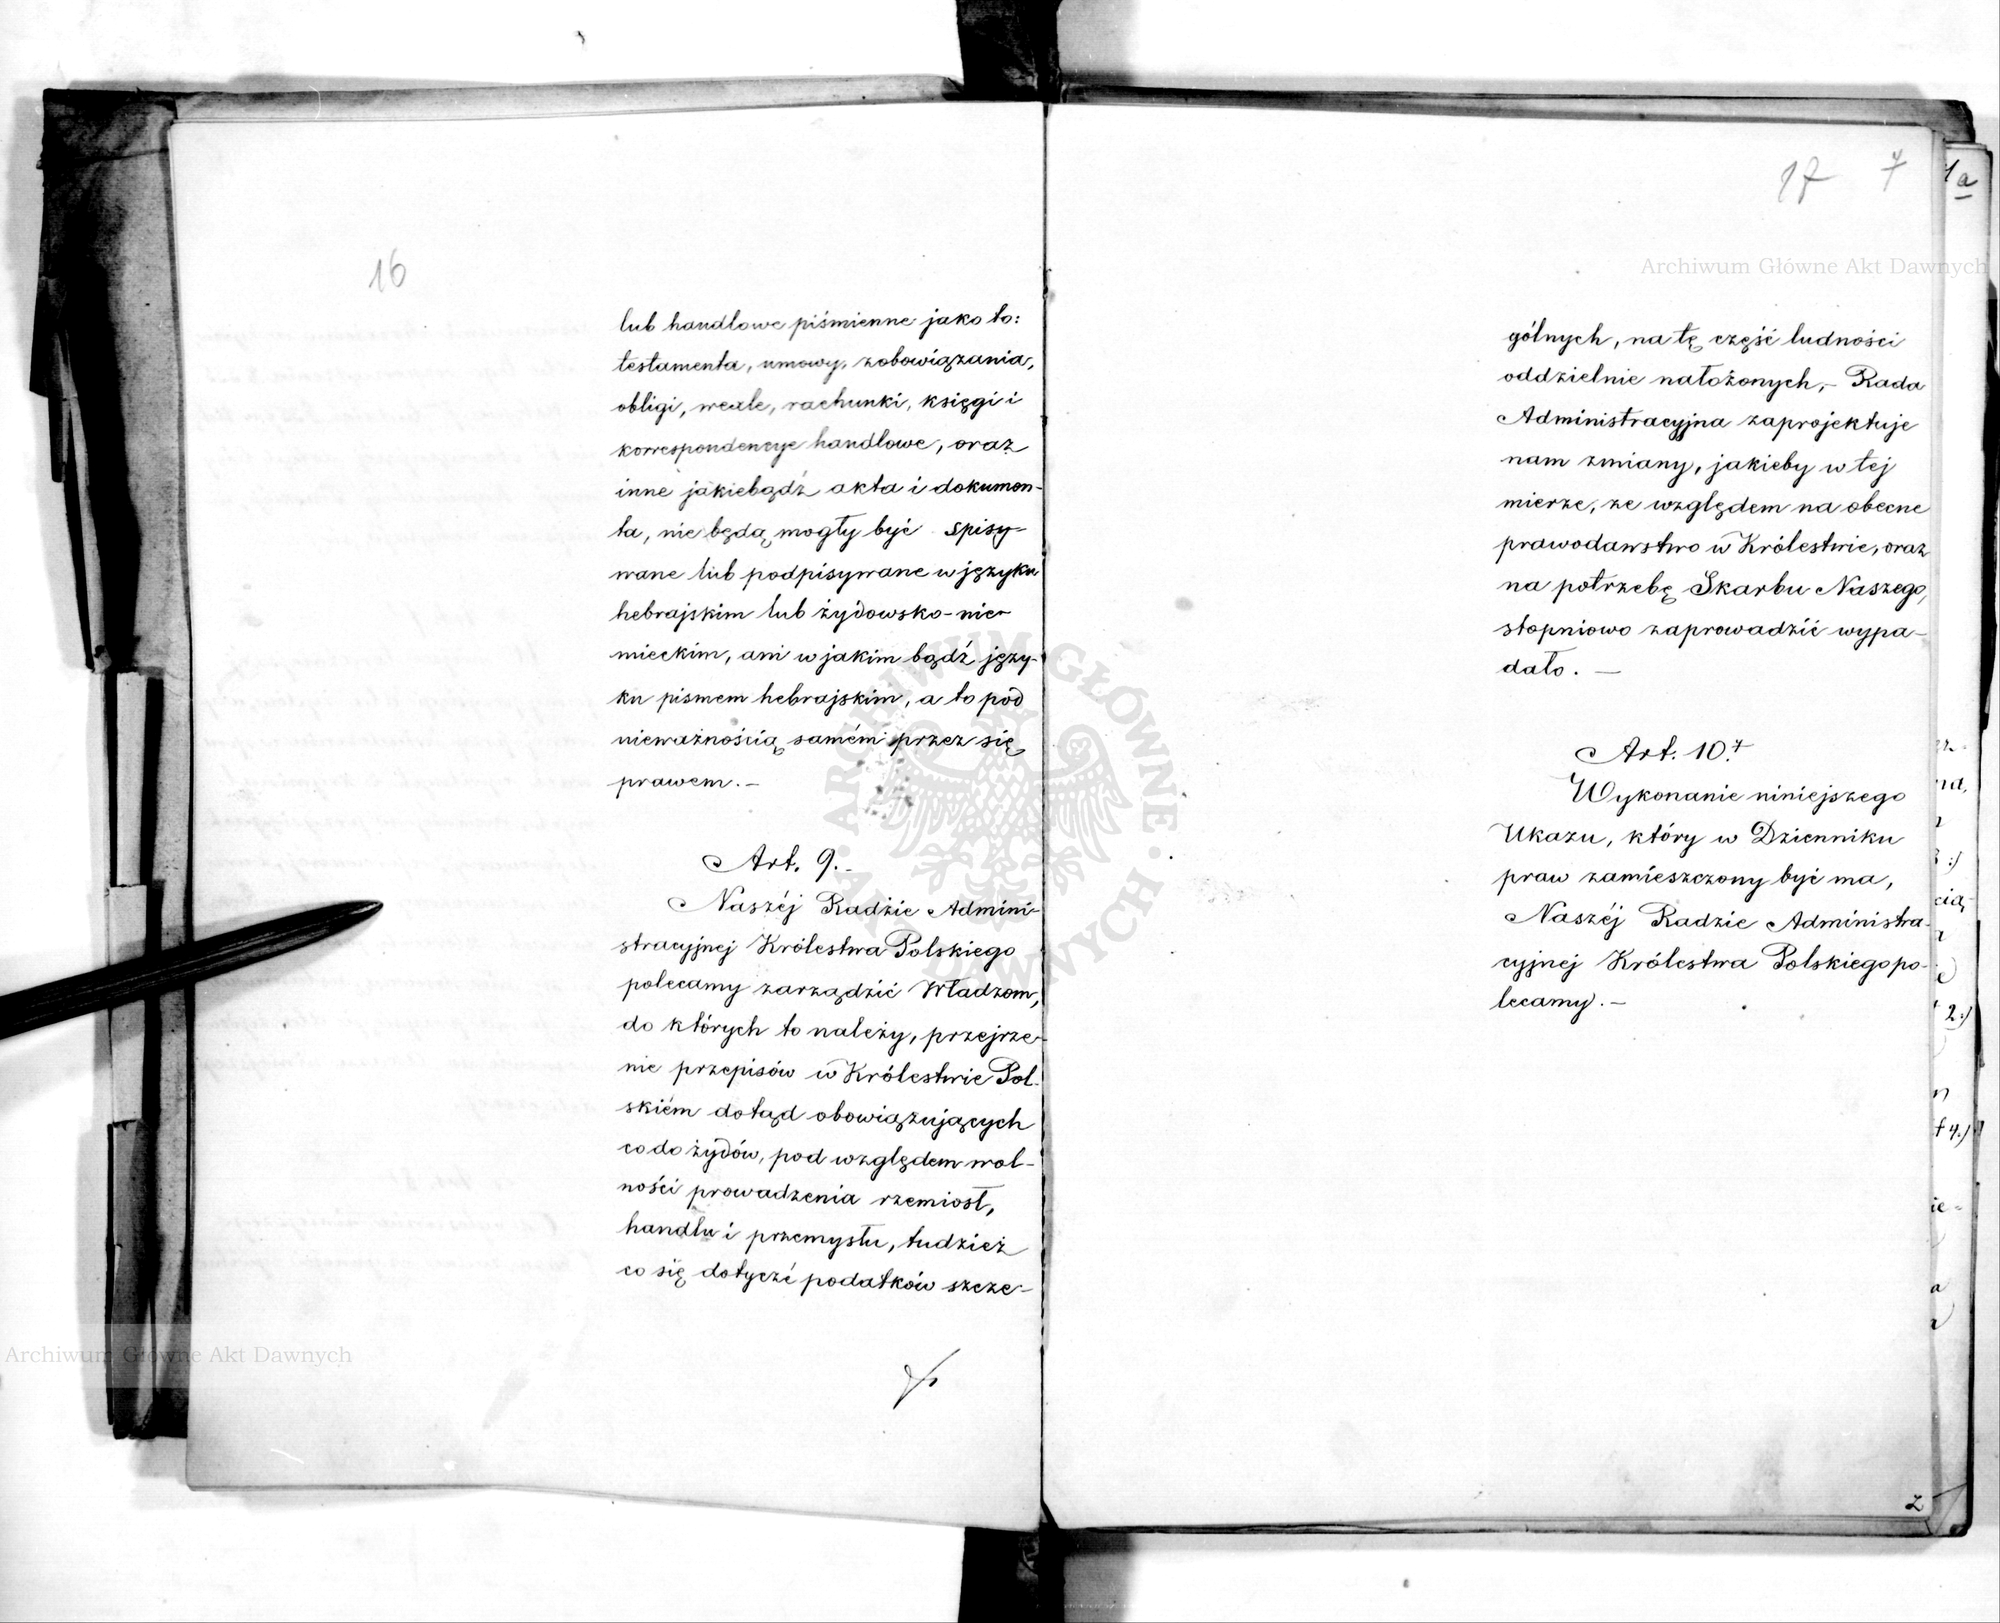 16
lub handlowe piśmienne jako to:
testamenta, umowy, zobowiązania,
obligi, wexle, rachunki, księgi i
korrespondencye handlowe, oraz
inne jakiebądź akta i dokumen-
ta, nie będą mogły być spisy-
wane lub podpisywane w języku
hebrajskim lub żydowsko-nie-
mieckim, ani w jakim bądź języ-
ku pismem hebrajskim, a to pod
nieważnością samém przez się
prawem.-
Art. 9.-
Naszéj Radzie Admini-
stracyjnej Królestwa Polskiego
polecamy zarządzić Władzom,
do których to należy, przejrze-
nie przepisów w Królestwie Pol-
skiém dotąd obowiązujących
co do żydów, pod względem wol-
ności prowadzenia rzemiosł,
handlu i przemysłu, tudzież
co się dotyczé podatków szcze-
17 7
gólnych, na tę część ludności
oddzielnie nałożonych,- Rada
Administracyjna zaprojektuje
nam zmiany, jakieby w tej
mierze, ze względem na obecne
prawodawstwo w Królestwie, oraz
na potrzebę Skarbu Naszego,
stopniowo zaprowadzić wypa-
dało. -
Art. 10.
Wykonanie niniejszego
Ukazu, który w Dzienniku
praw zamieszczony być ma,
Naszéj Radzie Administra-
cyjnej Królestwa Polskiego po-
lecamy.-
2
Archiwum Główne Akt Dawnych
Archiwum Główne Akt Dawnych
ARCHIWUM GŁÓWNE AKT DAWNYCH